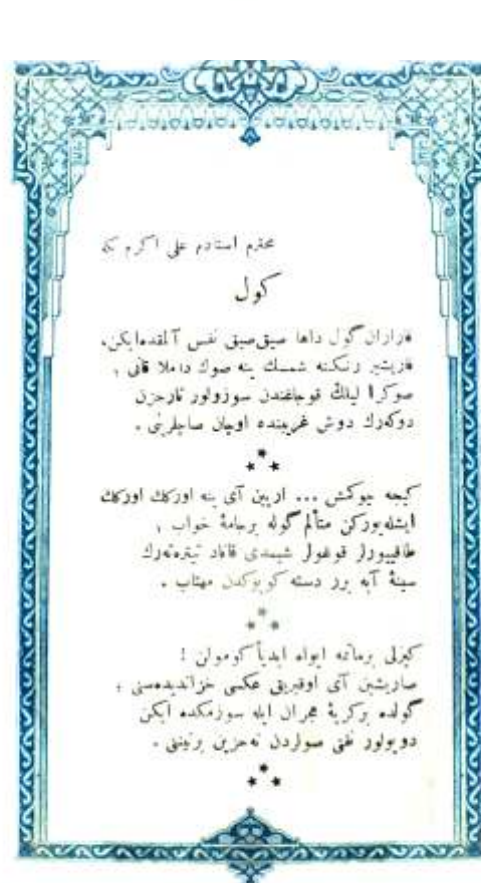 محترم استادم علی اکرم بکه
کول
قاراران گول داها صیق صیق نفس آلمقده‌ایکن،
قاریشیر رنکنه شمسك ینه صوك داملا قانی ،
صوکرا لیلك قوجاغندن سوزولور
دوکەرك دوش غریبنده اوچان صاچلرینی .
کیجه چوکمش ... اریین آی ینه اورکك اورکك
ایشله‌یورکن متألم گوله برجامهٔ خواب ،
طاقییورلر قوغولر شیمدی قاناد تیتره‌ته‌رك
سینهٔ آبه برر دسته کوپوکدن مهتاب .
کیزلی ابدیاً کومولن !
صاریشین آی عکسی خزاندیده‌سنی ،
گولده برکریهٔ هجران ایله سوزمکده ایکن
دویولور صولردن نه‌حزین